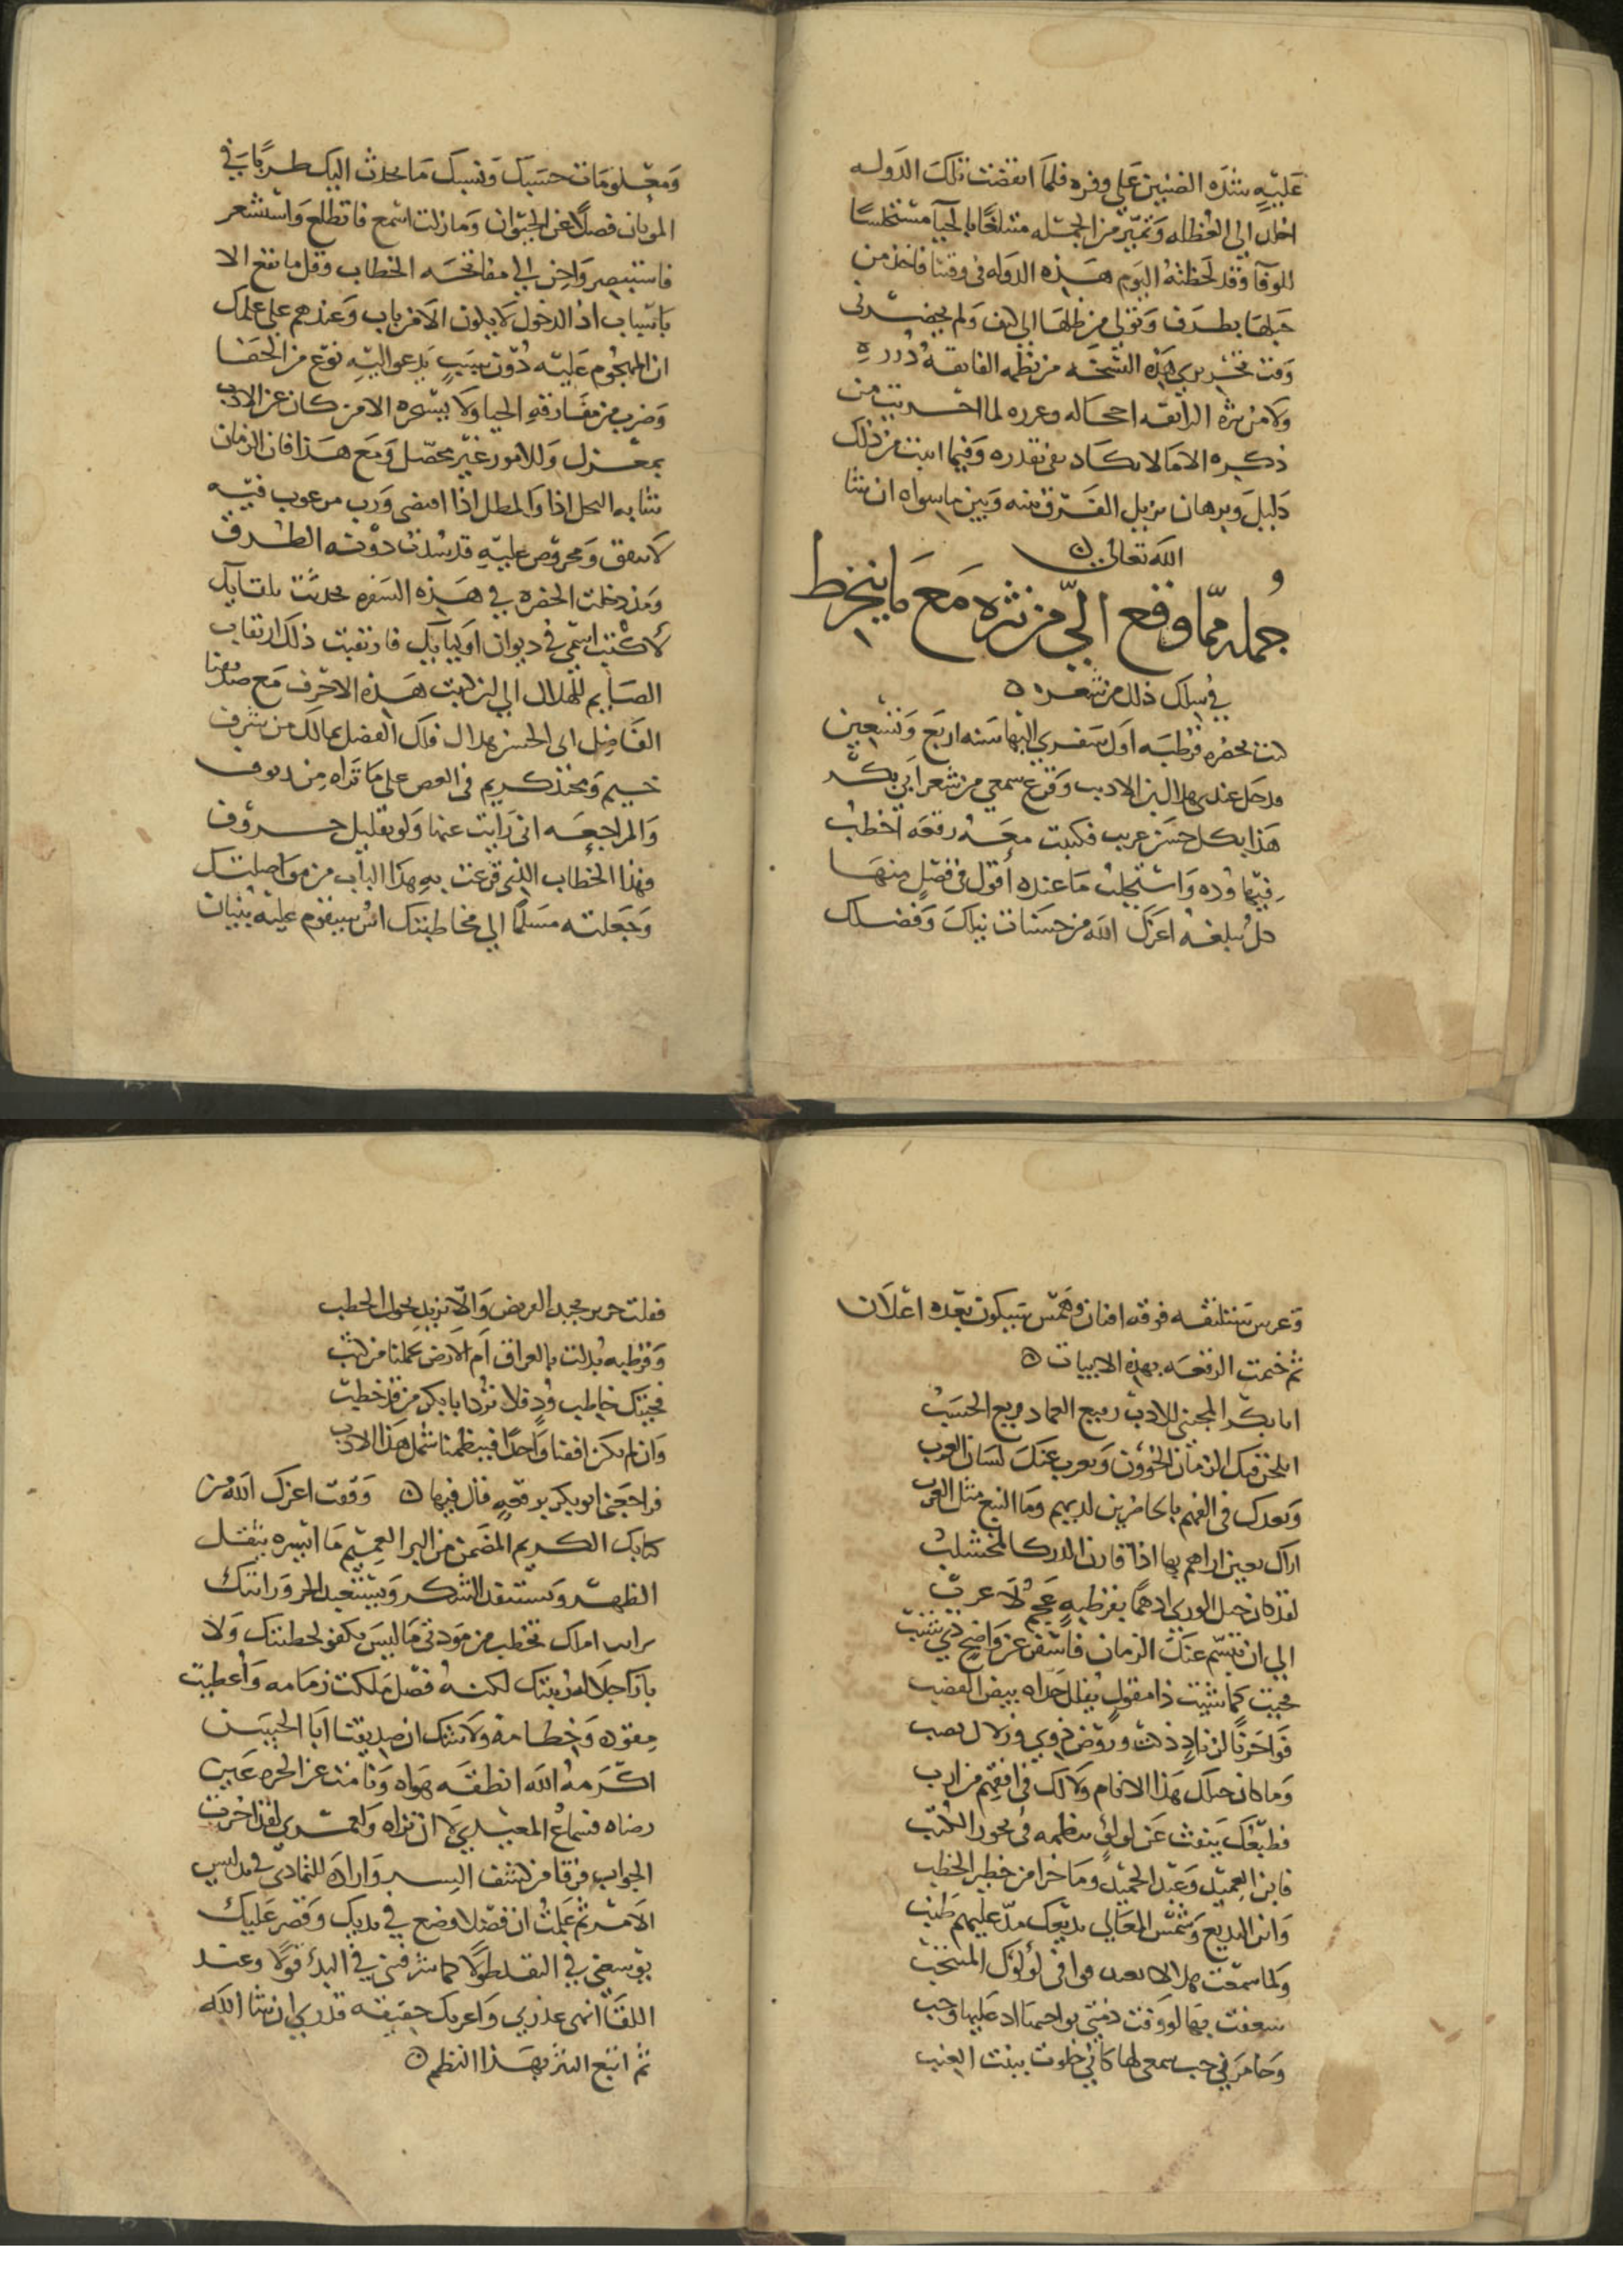 عَليهِ شدَه الضنين عَلى وفره فلما انقضت تلكَ الدَوله
اخلد الى العُطله وَتميّز من الجمله متبلغًا بالحيآ مستخلسًا
للوفآ وَقد لحَظتهُ اليَوم هَذه الدَوله فى وقتنا فاخذ من
حَبلهَا بطرَف وَتولى من ظلهَا الى كنف وَلم يحضرنى
وَقت تحريرى هَذه النسخَه من نظمه الفايقه دُرره
وَلا من نثره الرايقه احجاله وغرره لما اشتريت من
ذكره الا مَا لا يكاد يفى بقدره وَفيما اثبت من ذلك
دَليل وَبرهان يزيل الفَرق بينه وَبين ما سواه ان شا
الله تعالى
جُمله ممّا وقع الىّ من نثره مَعَ مَا ينخرط
فى سلك ذلك من شعره
كنت بحضره قرطبَه اول سَفرى اليها سَنه اربَع وَتسعين
فدخل عندى هلال بن الاديب وَقرع سمعى من شعر ابى بكر
هَذا بكل حسَن غريب فكتبت معَهُ رقعَه اخطبُ
فيهَا وُده وَاستجلبُ مَا عنده أقول فى فصل منهَا
كل يبلغه اعزكَ الله من حسَنات نبلكَ وَفضلك
وَمعلومَات حسَبك وَنسبك مَا يحدث اليك طربًا فى
الموتان فضلًا عن الحيَوان وَمَا زلت اسمع فاتطلع وَاستشعر
فاستبصر وَاحن الى مفاتحَه الخطاب وقل ما تقع الا
باسباب اذ الدخول لا يكون الا من باب وَعندهم على علمك
ان الهجُوم عَليه دُون سبَبٍ يَدعو اليه نوع من الجفَا
وَضرب من مفَارقهِ الحيا وَلا يستجره الا من كان عن الادب
بمعزل وَللامور غير محصّل وَمَع هَذا فان الزمان
تشابه المحل اذا وَالمطل اذا اقتضى وَرب مرغوب فيه
لا ينفق وَمحروص عليهِ قد سُدت دوْنه الطرق
وَمذ دخلت الحضره فى هَذه السَفره تحدثت بلقآيك
لاكتب اسمى فى ديوان اوليآيك فارتقبت ذلك ارتقاب
الصَايم للهلال الى ان كتبت هَذه الاحرف مَع صديقنا
الفَاضل ابى الحسن هلال فلك الفضل بمالك من شرف
خيم وَمحتد كريم فى الغص على مَا تَراه من زيوف
وَالمراجعَه ان رَايت عنها وَلو بقليل حروف
فهذا الخطاب الذى قرعت بهِ هَذا الباب من موَاصلتك
وَجَعلته مسَلمًا الى مخاطبتك اسٌ سيقوم عليه بنيان
وَغرس سَتلتفه فوقه افنان وَهَمس سَيكون بَعده اعْلان
ثم ختمت الرقعَه بهذه الابيات
ابا بكر المجتنى للادب رَفيع العماد قريع الحَسَبْ
ايلحن فيك الزمَان الخؤون وَيعرب عنكَ لسَان العرب
وَبعدك فى الفهم بالحاضرين لديهم وَمَا النبع مثل الغرب
اراك بعين اراهم بهَا اذًا قارن الدر كالمخشلبْ
لقد كان خيل الورى ادهمًا بقرطبهٍ عَجمٌ لَا عرب
الى ان تبسّم عنكَ الزمان فاسْفر عن وَاضح ذى شنب
فجيت كما شيت ذا مقولٍ يفلل حَداه بيض القضب
فوَا حَزنًا لزنادٍ ذكت وَروْض ذوى وَزلال نضب
وَما كان حملك هَذا الانام وَلا لك فى افقهم من ارب
فطبْعك يَنفث عَن لؤلؤٍ تنظمه فى نحور الكتب
فابن العَميد وَعَبد الحميد وَمَا خبرا من خطير الخطب
وَابن البديع وَشمس المعَالى بديعك مدّ عليهم طنبْ
وَلما سمعْت هلالا يعيد فوافى لؤلؤك المنتخب
شغفت بهَا لو وَفت ذمتى بواجبهَا اذ عَليها وَجب
وَخَامرَنى حب سمعى لها كأنى خلوت ببنت العنب
فقلت جرير يجيد القريض وَالّا يزيد بحول الخطب
وَقرطبه بُدلت بالعراق اَم الارض تحملنا من كثب
فجيتك خاطب وُدٍ فلا ترد ابا بكرٍ من قد خطبْ
وَان لم يكن افقنا وَاحدًا فينظمنا شمل هَذا الادب
فراجَعَنى ابو بكر برقعهٍ قال فيها وَقفت اعزك الله من
كتابك الكريم المضَمن من البر العميم مَا ايسره يثقل
الظهر وَيستنفد الشكر وَيستعبد الحر وَراتبك
براى امراك تخطب من مودتى مَا ليسَ بكفو لخطبتك وَلا
بازا جلاله رتبتك لكنهُ فضْل ملكت زمَامه وَاُعطيت
مقوده وَخطامه وَلا شك ان صديقنا ابا الحسَين
اكرَمهُ الله انطقَه هَواه وَنامت عن الحره عَين
رضاه فسماع المعيدى لَا ان تراه وَلعمرى لقد اخرت
الجواب فرقا من كشف السر وَارادة للتمادى فى تدليس
الامر ثم عَلمتُ ان فضلا وضع فى يديك وَقصر عَليك
يوسعنى فى النقد طولًا كما شرفنى فى البدُ قولًا وعند
اللقآ انهى عذرى وَاعرفك حقيقه قدرى ان شا الله
ثم اتبع النثر بهَذا النظم